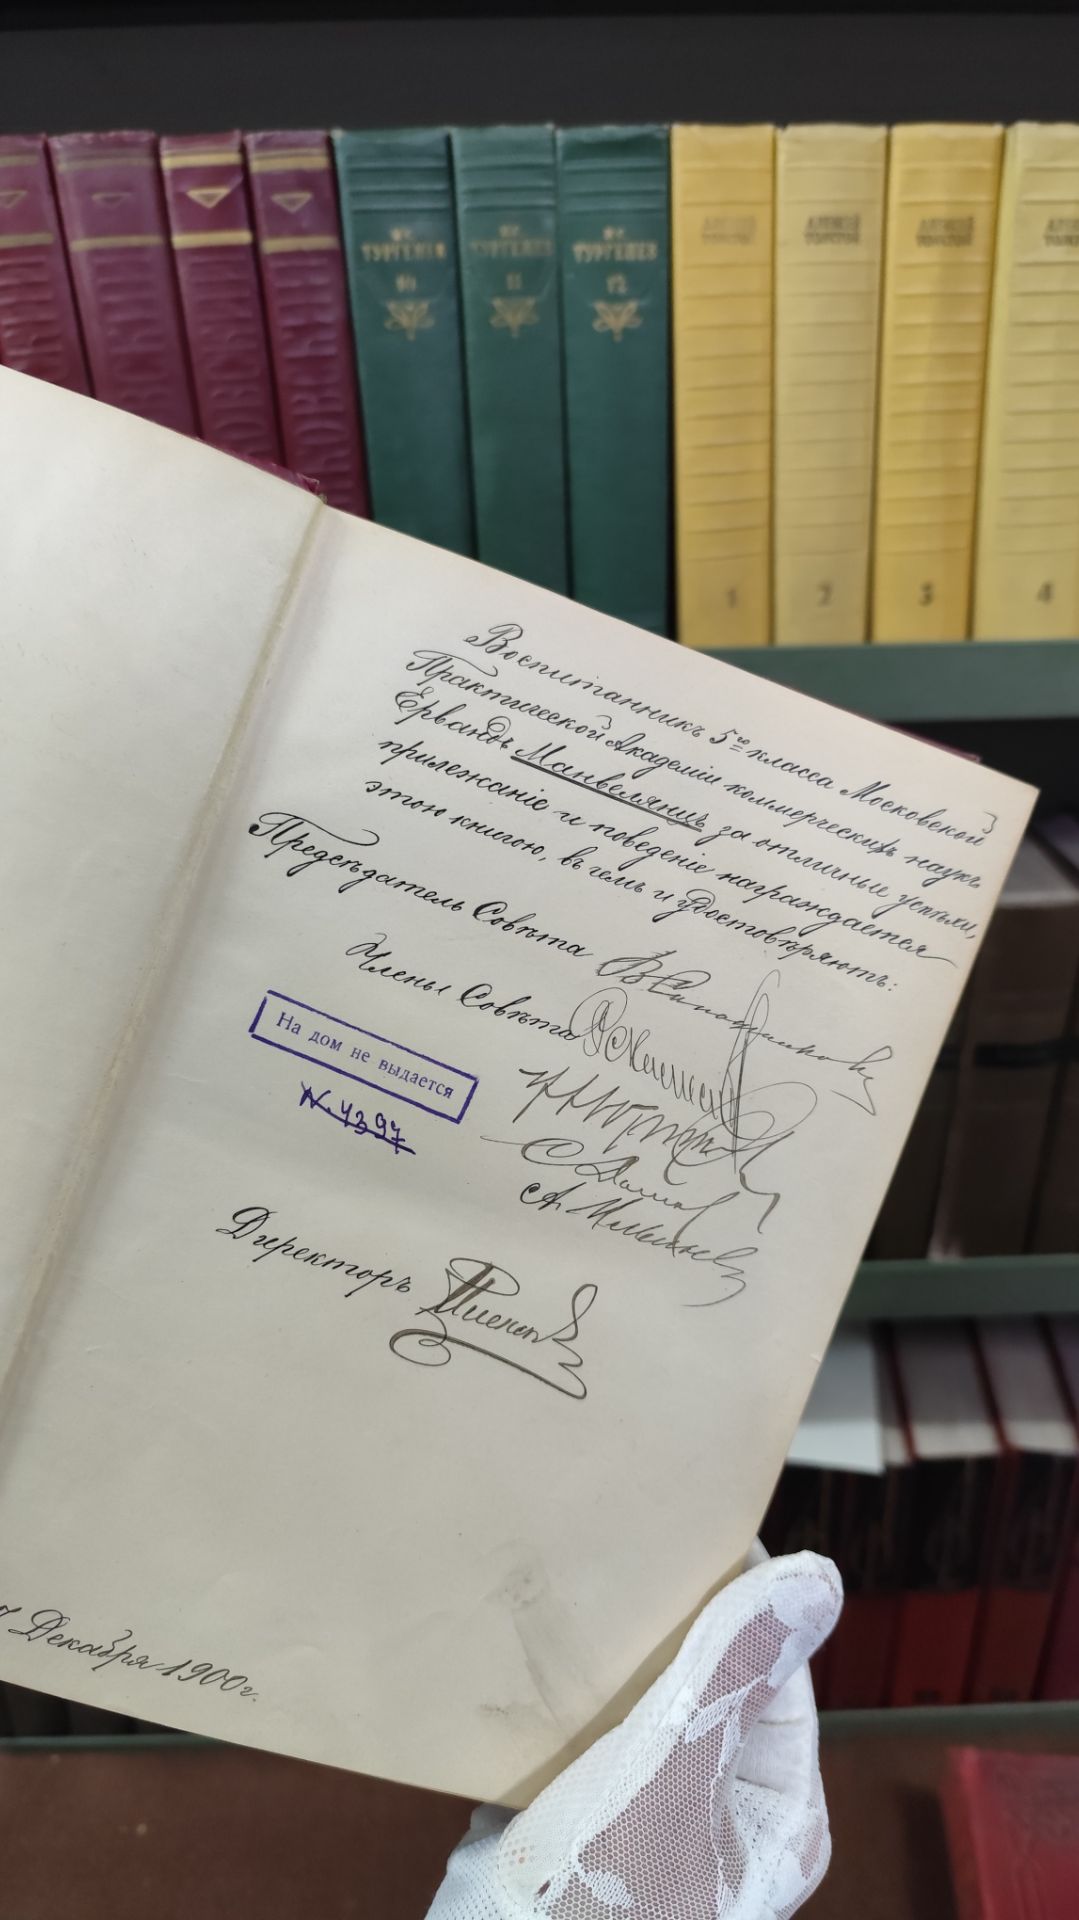 ТУРГЕНЕВ
10
ТУРГЕНЕВ
11
ТУРГЕНЕВ
12
АЛЕКСЕЙ
ТОЛСТОЙ
1
АЛЕКСЕЙ
ТОЛСТОЙ
2
АЛЕКСЕЙ
ТОЛСТОЙ
3
4
Воспитанникъ 5го класса Московской
Практической Академіи коммерческихъ наукъ
Ервандъ Манвелянцъ за отличные успѣхи,
прилежаніе и поведеніе награждается
этою книгою, въ чемъ и удостовѣряютъ:
Предсѣдатель Совѣта
Члены Совѣта
На дом не выдается
N. 4397
Директоръ
Декабря 1900 г.